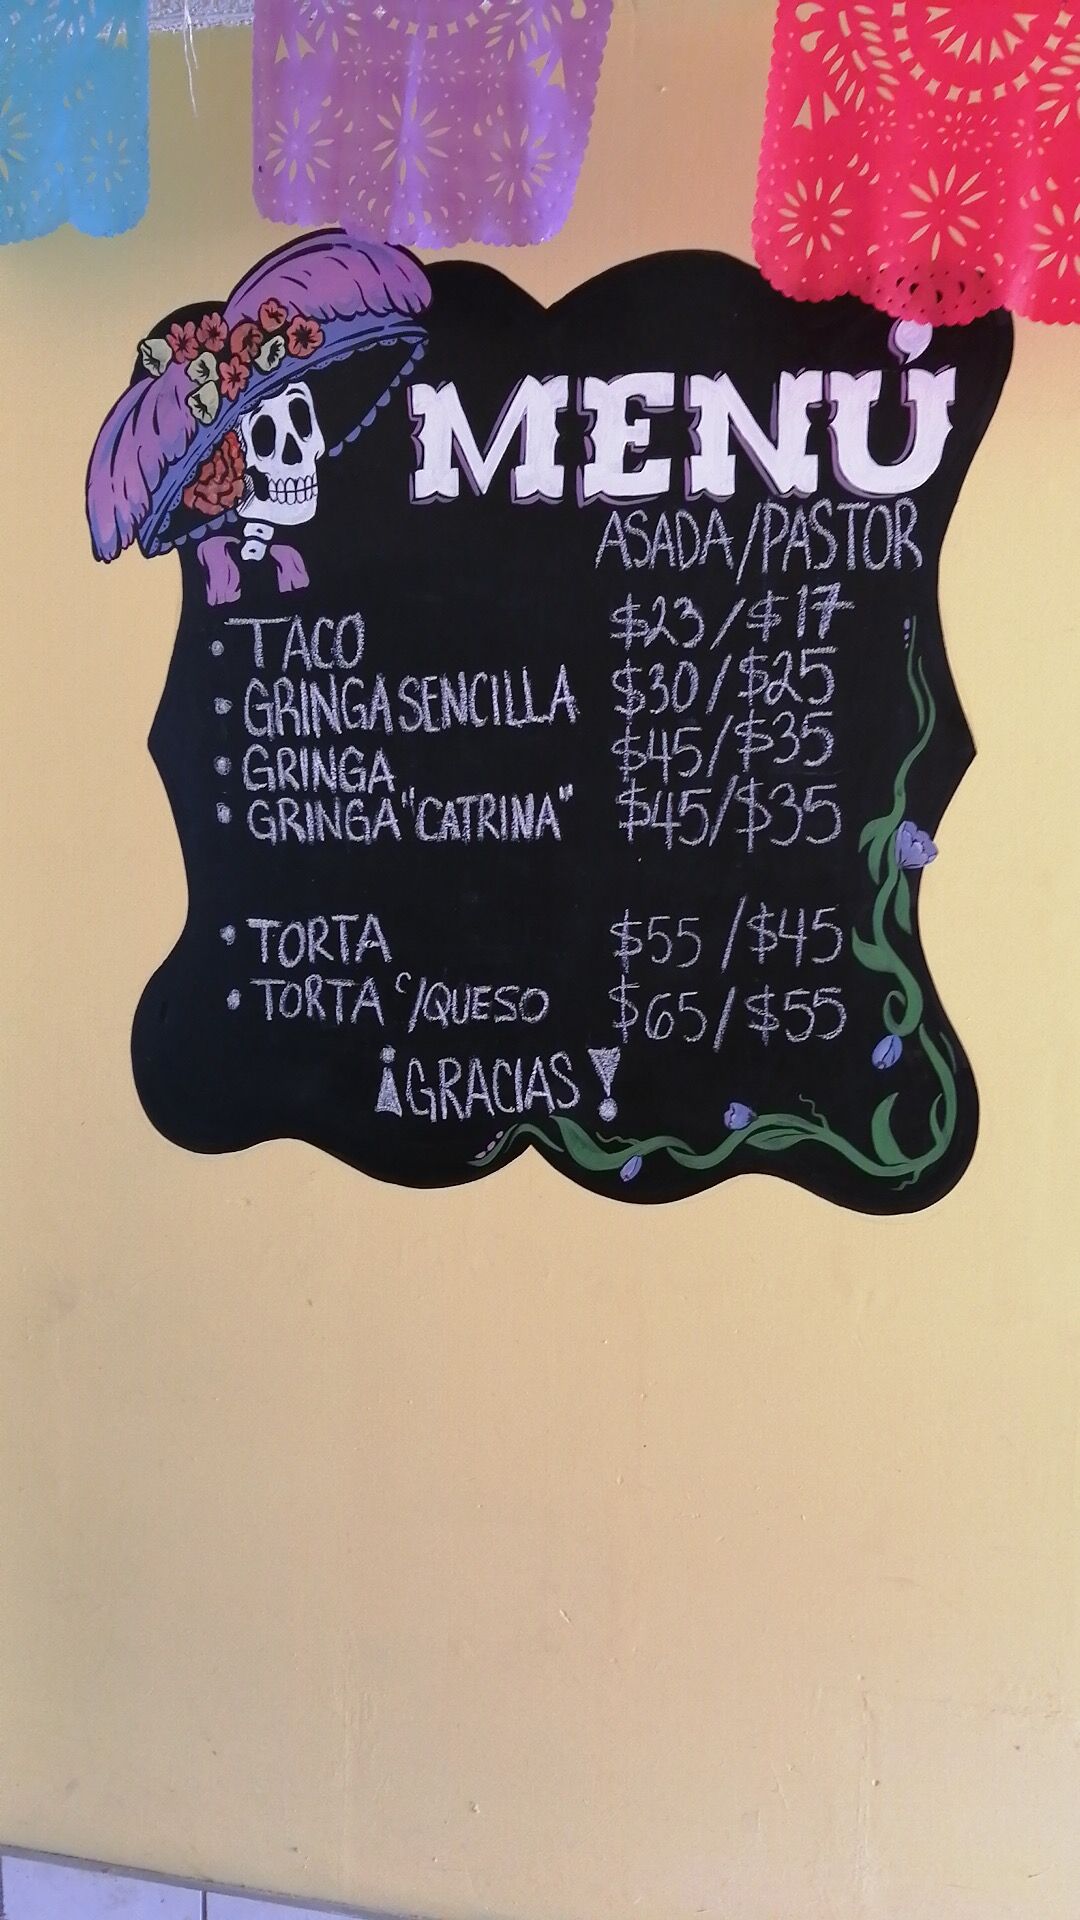 MENÚ
ASADA/PASTOR
• TACO $23/$17
• GRINGA SENCILLA $30/$25
• GRINGA $45/$35
• GRINGA "CATRINA" $45/$35
• TORTA $55/$45
• TORTA C/QUESO $65/$55
¡GRACIAS!